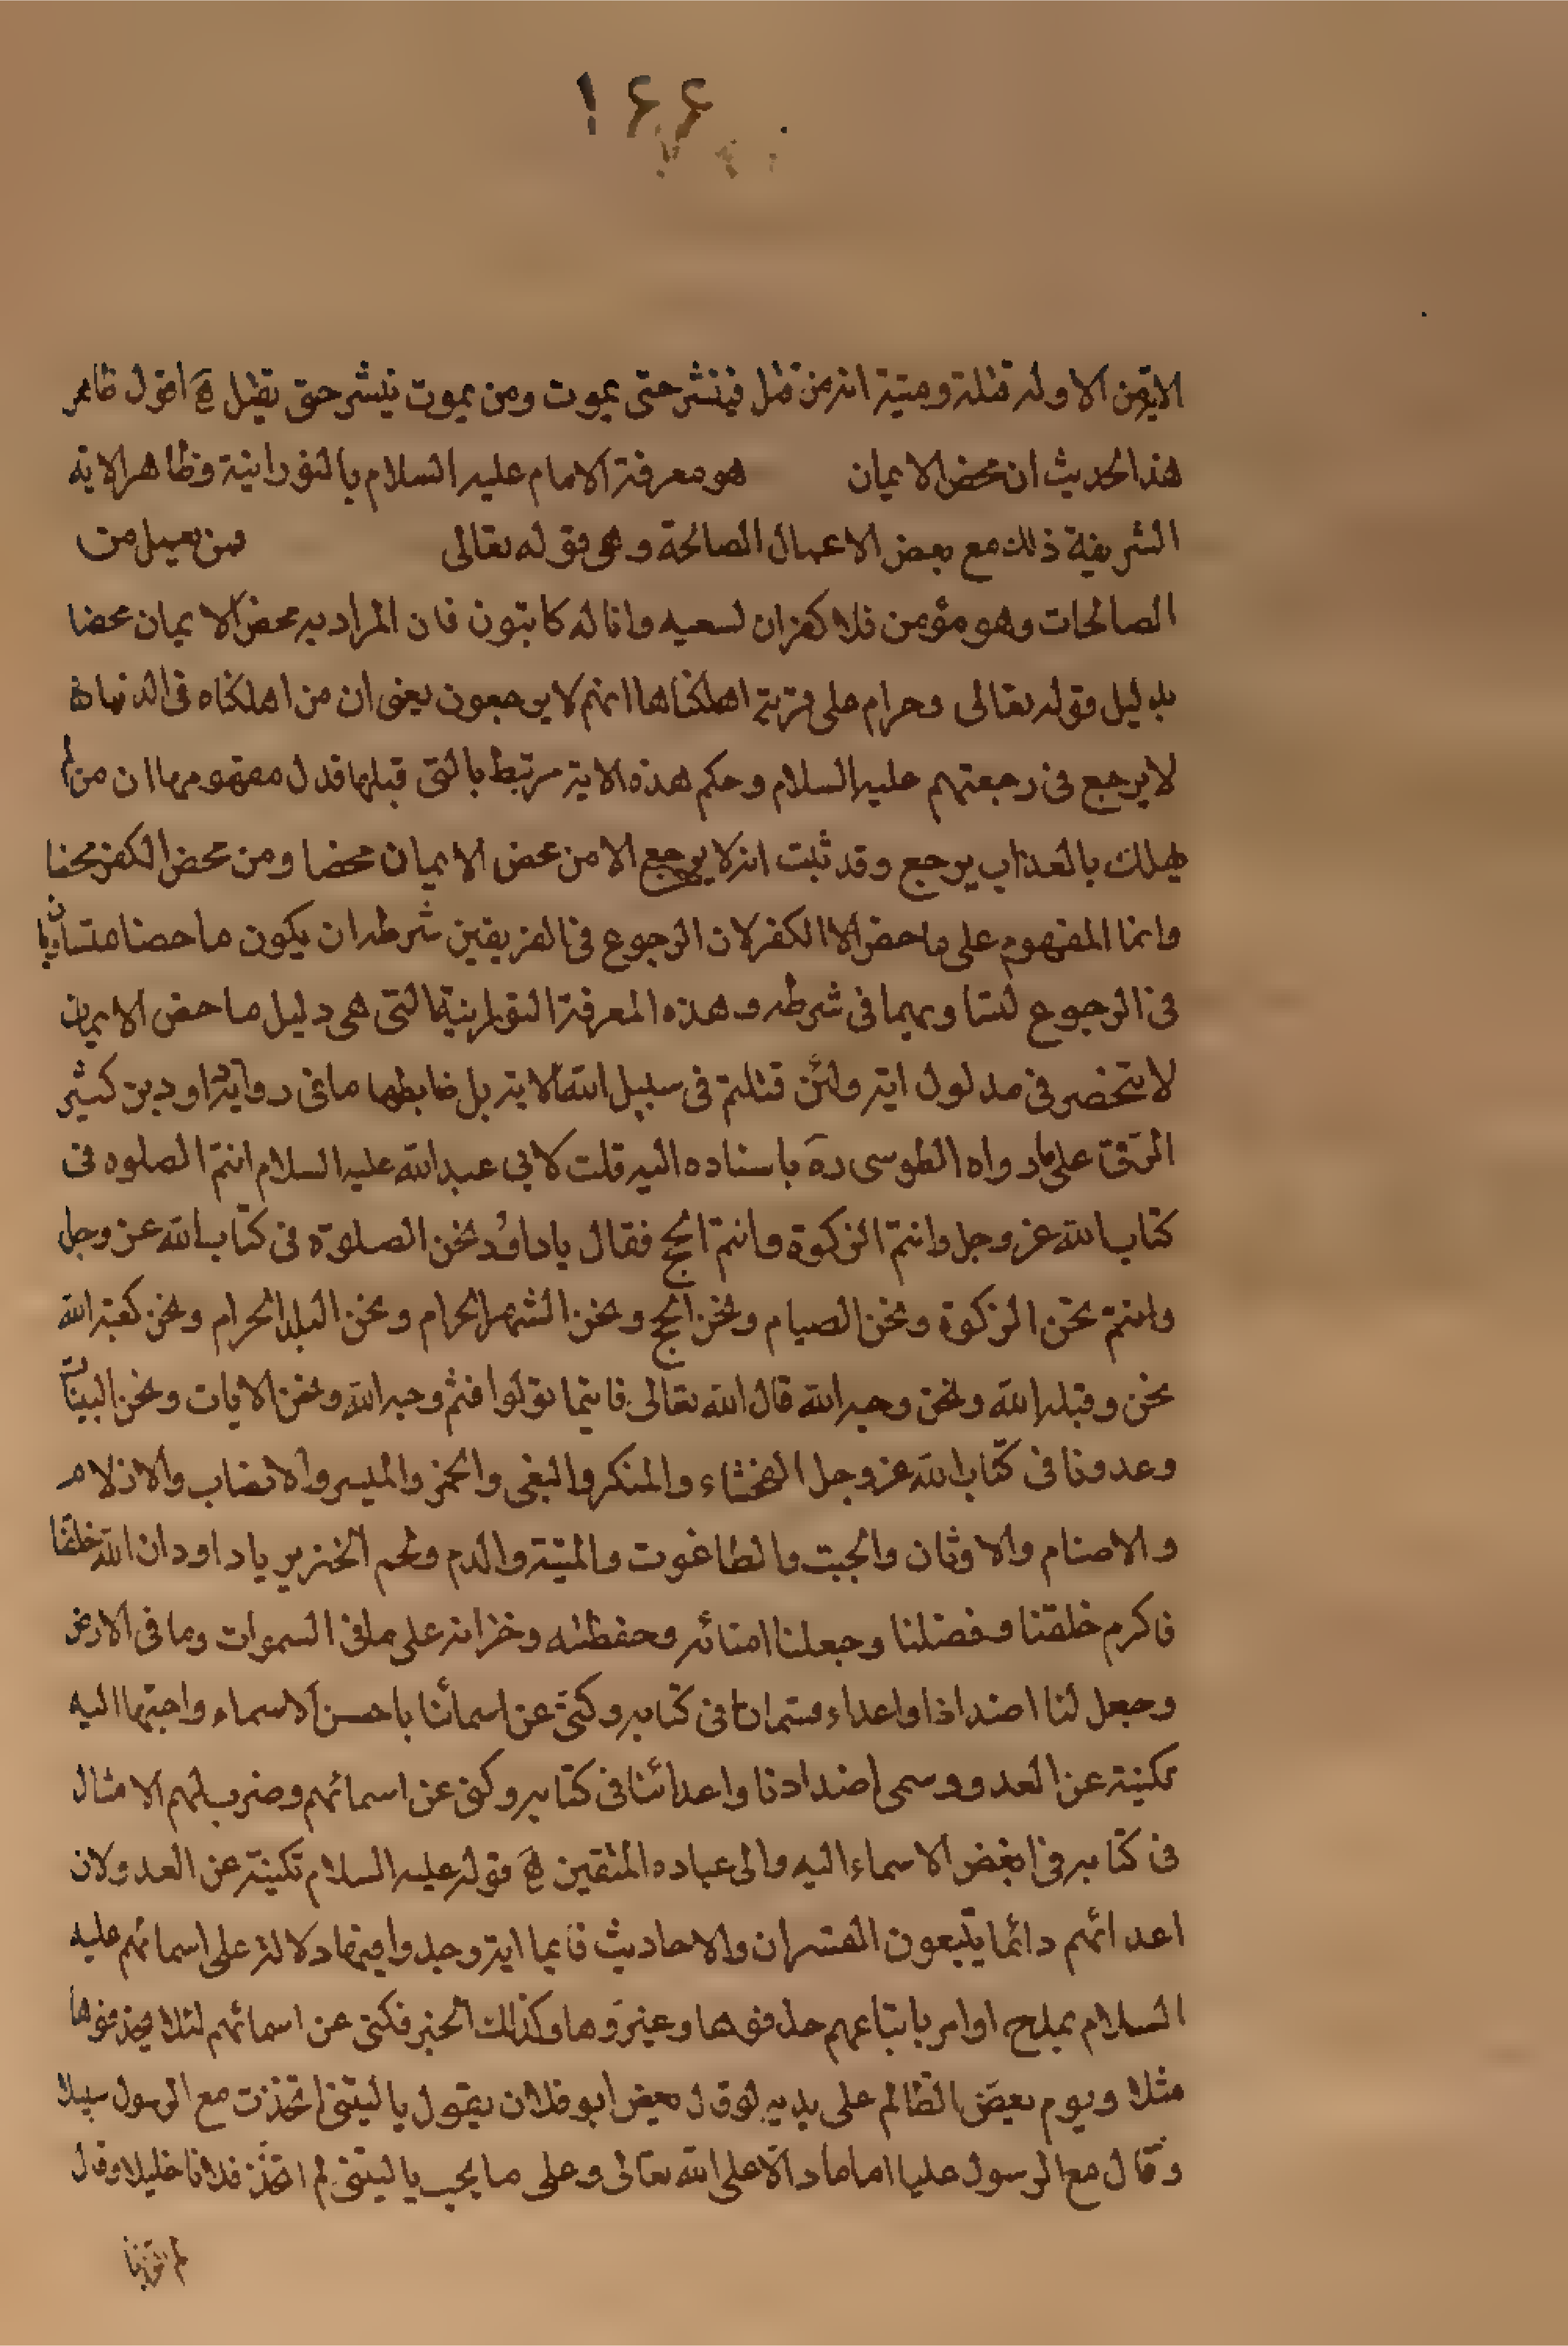 ۱۶۶
الايؤمن الا وله قتلة وميتة انه من قتل فينشر حتى يموت ومن يموت ينشر حتى يقتل اقول ظاهر
هذا الحديث ان محض الايمان هو معرفة الامام عليه السلام بالنورانية وظاهر الاية
الشريفة ذلك مع بعض الاعمال الصالحة وهى قوله تعالى فمن يعمل من
الصالحات وهو مؤمن فلا كفران لسعيه وانا له كاتبون فان المراد به محض الايمان محضا
بدليل قوله تعالى وحرام على قرية اهلكناها انهم لا يرجعون يعنى ان من اهلكناه فى الدنيا
لا يرجع فى رجعتهم عليه السلام وحكم هذه الاية مرتبط بالتى قبلها فدل مفهومها ان من لم
يهلك بالعذاب يرجع وقد ثبت انه لا يرجع الا من محض الايمان محضا ومن محض الكفر محضا
وانما المفهوم على ماحض الكفر لان الرجوع فى الفريقين شرطه ان يكون ماحضا متساويان
فى الرجوع لتساويهما فى شرطه وهذه المعرفة النورانية التى هى دليل ماحض الايمان
لا تنحصر فى مدلول اية ولئن قتلتم فى سبيل الله الاية بل ضابطها ما فى رواية داود بن كثير
الرقى على ما رواه الطوسى ره باسناده اليه قلت لابى عبد الله عليه السلام انتم الصلوه فى
كتاب الله عز وجل وانتم الزكوة وانتم الحج فقال يا داود نحن الصلوة فى كتاب الله عز وجل
وانتم نحن الزكوة ونحن الصيام ونحن الحج ونحن الشهر الحرام ونحن البلد الحرام ونحن كعبة الله
نحن وقبلة الله ونحن وجه الله قال الله تعالى فاينما تولوا فثم وجه الله ونحن الايات ونحن البينات
وعدونا فى كتاب الله عز وجل الفحشاء والمنكر والبغى والخمر والميسر والانصاب والازلام
والاصنام والاوثان والجبت والطاغوت والميتة والدم ولحم الخنزير يا داود ان الله خلقنا
فاكرم خلقنا وفضلنا وجعلنا امنائه وحفظته وخزانه على ما فى السموات وما فى الارض
وجعل لنا اضدادا واعداء فسمانا فى كتابه وكنى عن اسمائنا باحسن الاسماء واحبها اليه
تكنية عن العدو وسمى اضدادنا واعدائنا فى كتابه وكنى عن اسمائهم وضرب لهم الامثال
فى كتابه فى ابغض الاسماء اليه والى عباده المتقين قوله عليه السلام تكنية عن العدو لان
اعدائهم دائما يتبعون القران والاحاديث فايما اية وجدوا فيها دلالة على اسمائهم عليه
السلام بمدح او امر باتباعهم حذفوها وغيروها وكذلك الخبر فكنى عن اسمائهم لئلا يحذفوها
مثلا ويوم يعض الظالم على يديه لو قال يعض ابو فلان يقول يا ليتنى اتخذت مع الرسول سبيلا
وقال مع الرسول عليا اماما دالا على الله تعالى وعلى ما يحب يا ليتنى لم اتخذ فلانا خليلا وقال